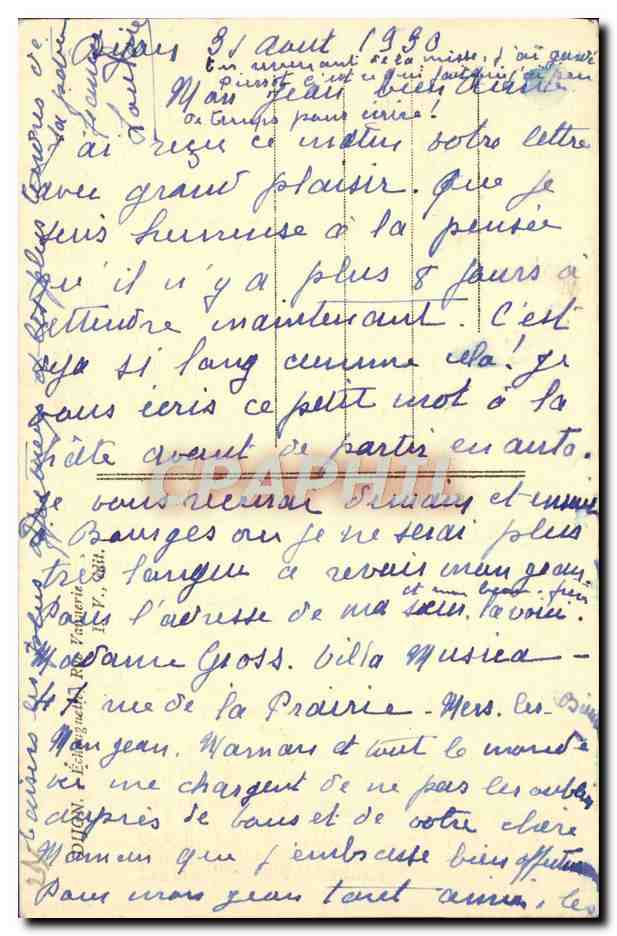 Dijon 31 Aout 1930
En revenant de la messe, j'ai gardé
Pierrot c'est ce qui
Mon Jean bien aimé
de temps pour écrire!
J'ai reçu ce matin votre lettre
avec grand plaisir. Que je
suis heureuse à la pensée
qu'il n'y a plus 8 jours à
attendre maintenant. C'est
déjà si long comme cela! Je
vous écris ce petit mot à la
hâte avant de partir en auto.
CPAPHIL
Je vous écrirai demain et ensuite
Bourges où je ne serai plus
très longue à revoir mon Jean
et mon beau-frère
Pour l'adresse de ma sœur, la voici.
Madame Gross. Villa Musica -
47 rue de la Prairie - Mers-les-
Mon Jean, Maman et tout le monde
ici me chargent de ne pas les oublier
auprès de vous et de votre chère
Maman que j'embrasse bien
Pour mon Jean tant aimé, les
baisers les plus et les plus tendres de
sa
Louise
DIJON. - Échauguette, Rue Vannerie
V., édit.